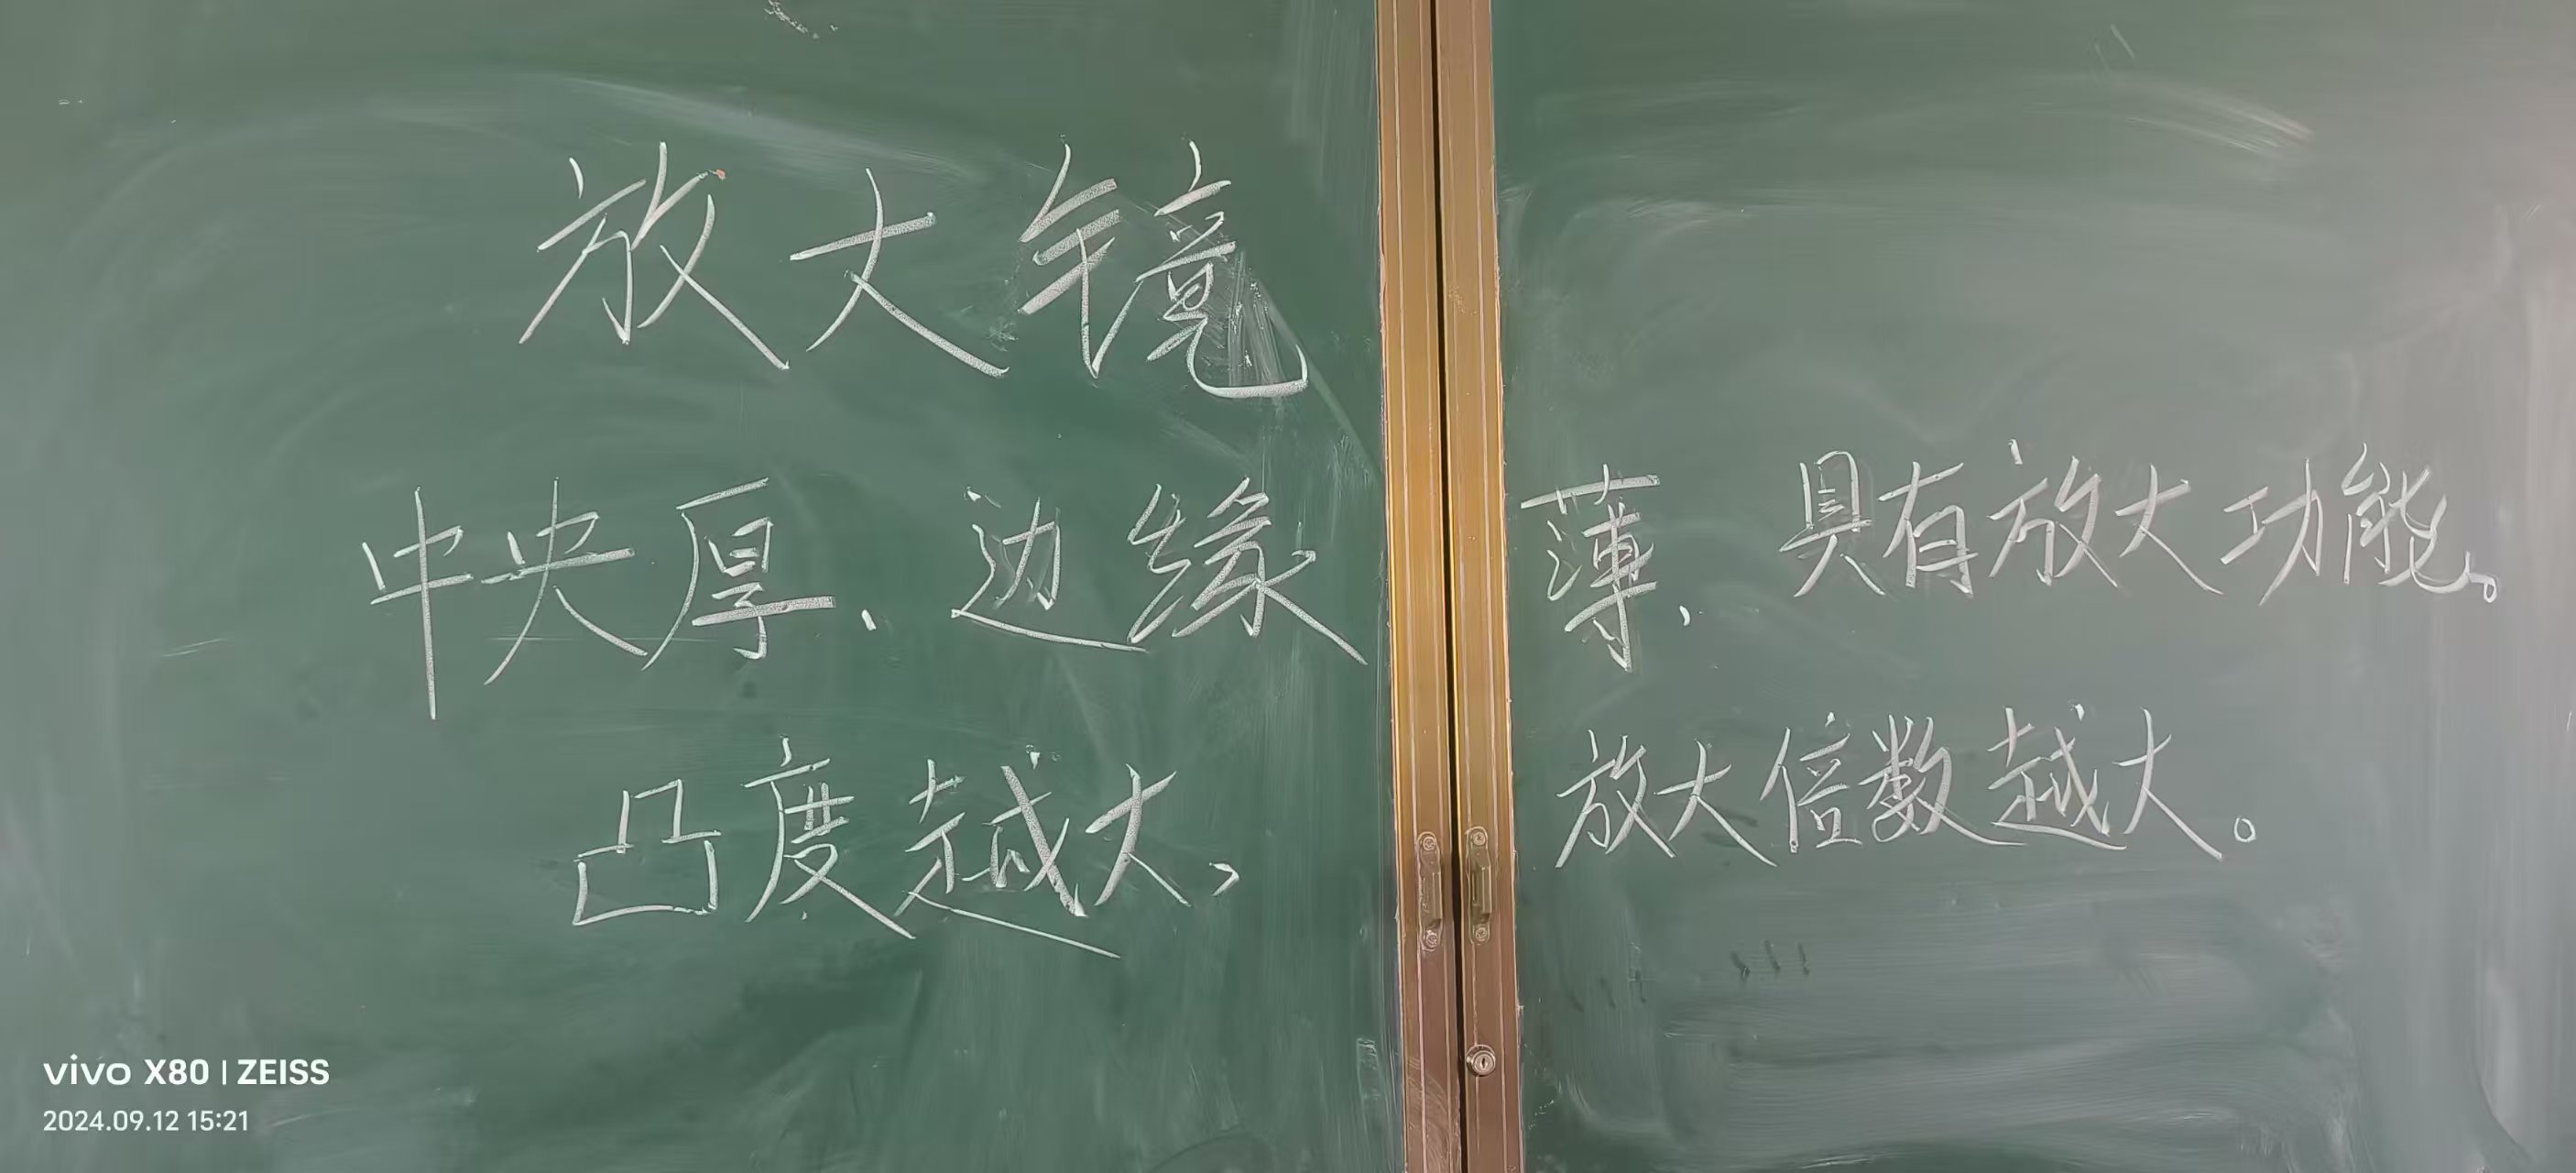 放大镜
中央厚、边缘薄、具有放大功能。
凸度越大,放大倍数越大。
vivo X80 | ZEISS
2024.09.12 15:21